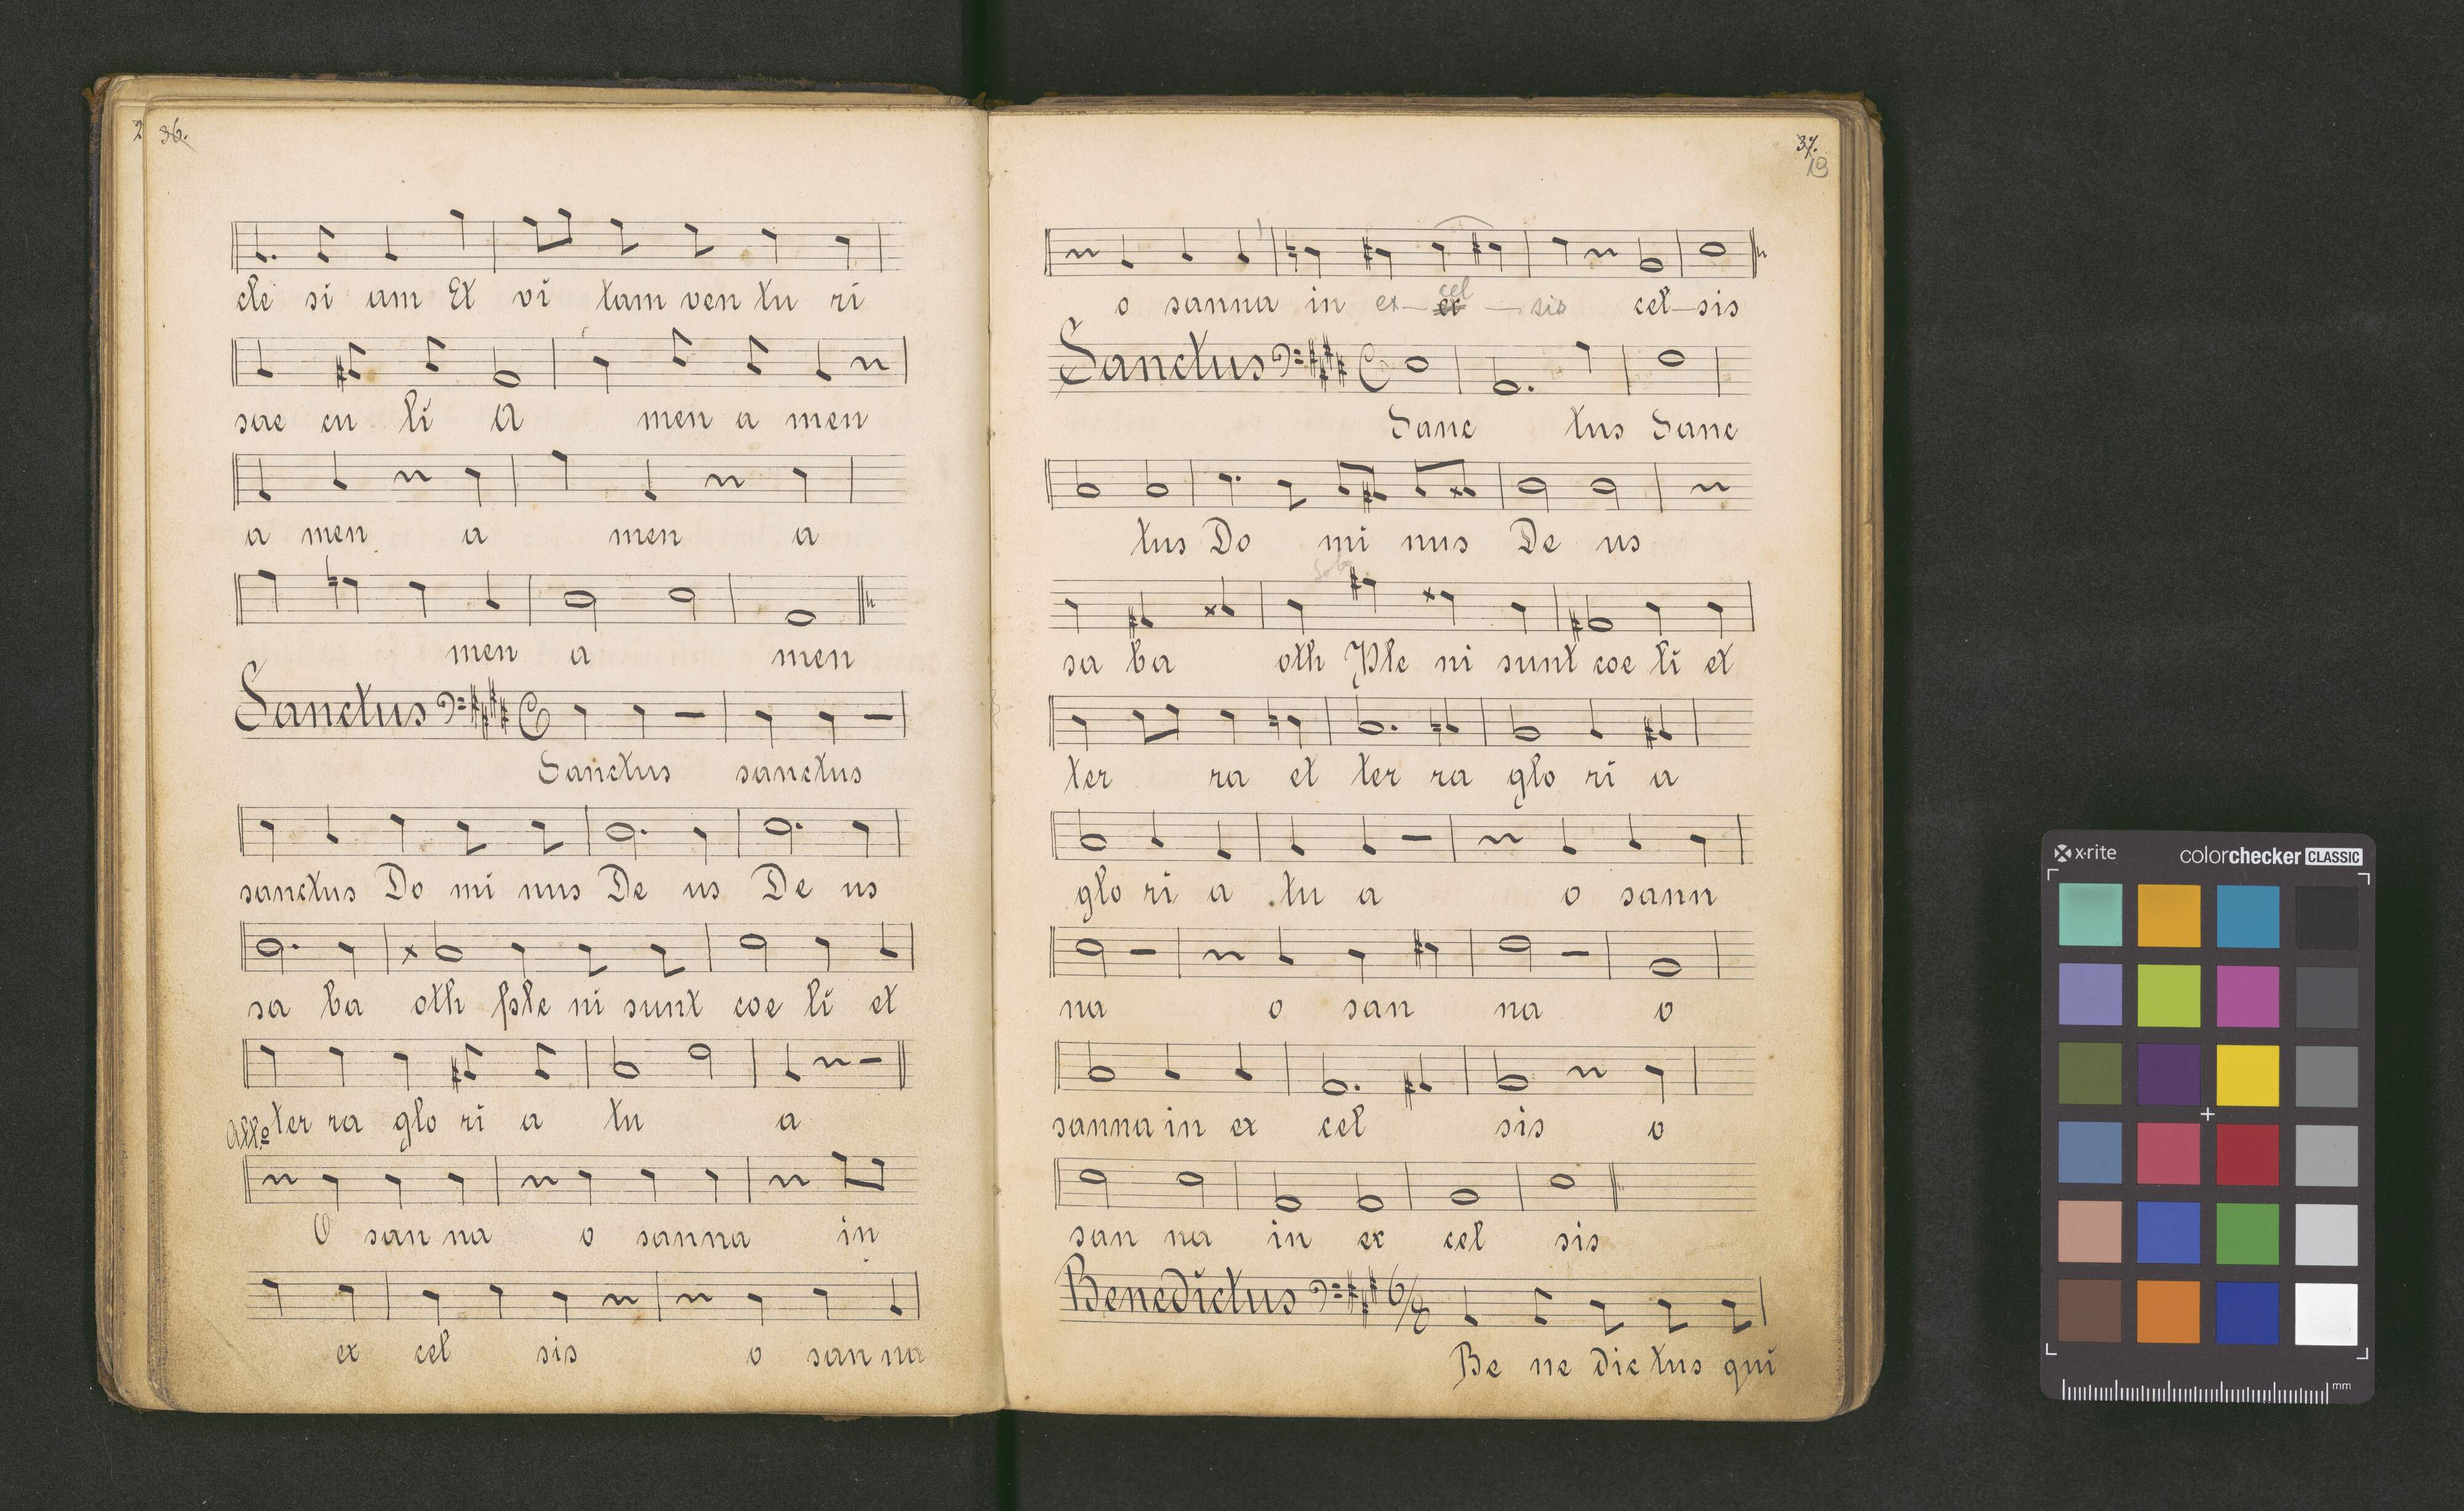 2 36.
cle si am Et vi tam ven tu ri
sae cu li A men a men
a men a men a
men a men
Sanctus C Sanctus sanctus
sanctus Do mi nus De us De us
sa ba oth ple ni sunt coe li et
ter ra glo ri a tu a
Allo
O san na o sanna in
ex cel sis o san na
37.
19
o sanna in ex cel sis cel sis
Sanctus C Sanc tus Sanc
tus Do mi nus De us
sa ba oth Ple ni sunt coe li et
ter ra et ter ra glo ri a
glo ri a tu a o sann
na o san na o
sanna in ex cel sis o
san na in ex cel sis
Benedictus 6/8
Be ne dic tus qui
x·rite colorchecker CLASSIC
mm